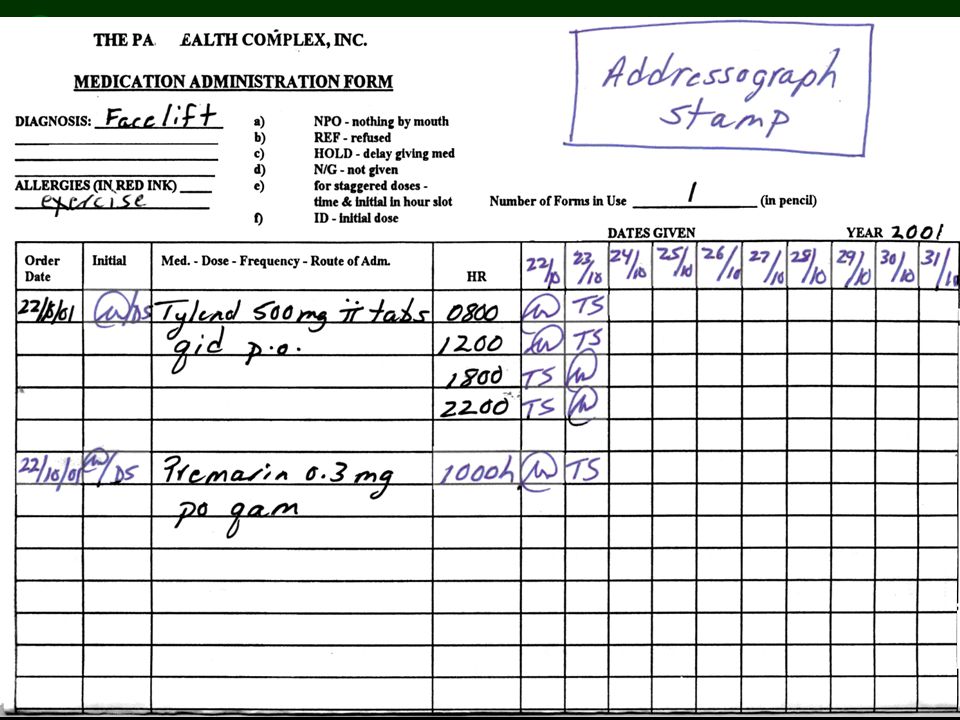 THE PA EALTH COMPLEX, INC.
Addressograph
stamp
MEDICATION ADMINISTRATION FORM
DIAGNOSIS: Facelift
a) NPO - nothing by mouth
b) REF - refused
c) HOLD - delay giving med
d) N/G - not given
ALLERGIES (IN RED INK)
exercise
e) for staggered doses -
time & initial in hour slot
f) ID - initial dose
Number of Forms in Use 1 (in pencil)
DATES GIVEN YEAR 2001
Order Date Initial Med. - Dose - Frequency - Route of Adm. HR 22/10 23/10 24/10 25/10 26/10 27/10 28/10 29/10 30/10 31/10
DS Tylenol 500mg ii tabs 0800 TS
qid p.o. 1200 TS
1800 TS
2200 TS
22/10/01 /DS Premarin 0.3 mg 1000h TS
po qam